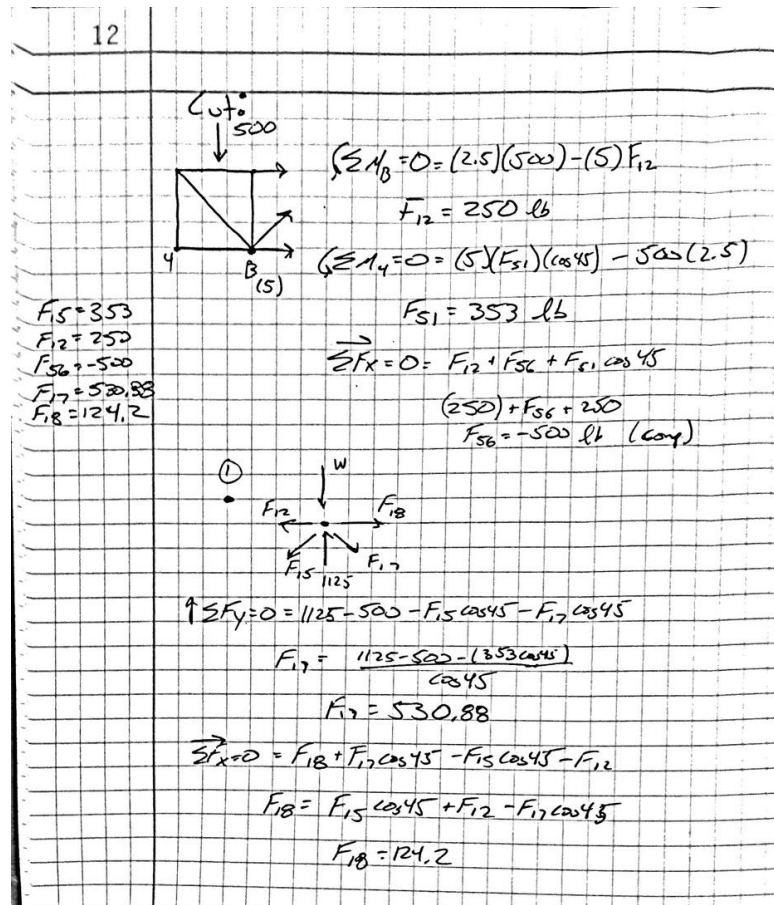 12
Cut:
500
4
B
(5)
ΣM_B = 0 = (2.5)(500) - (5) F_12
F_12 = 250 lb
ΣM_4 = 0 = (5)(F_51)(cos45) - 500(2.5)
F_51 = 353 lb
ΣF_x = 0 = F_12 + F_56 + F_51 cos45
(250) + F_56 + 250
F_56 = -500 lb (comp)
F_15 = 353
F_12 = 250
F_56 = -500
F_17 = 530.88
F_18 = 124.2
①
W
F_12
F_18
F_15
1125
F_17
↑ΣF_y = 0 = 1125 - 500 - F_15 cos45 - F_17 cos45
F_17 = 1125 - 500 - (353cos45)
cos45
F_17 = 530.88
ΣF_x = 0 = F_18 + F_17 cos45 - F_15 cos45 - F_12
F_18 = F_15 cos45 + F_12 - F_17 cos45
F_18 = 124.2